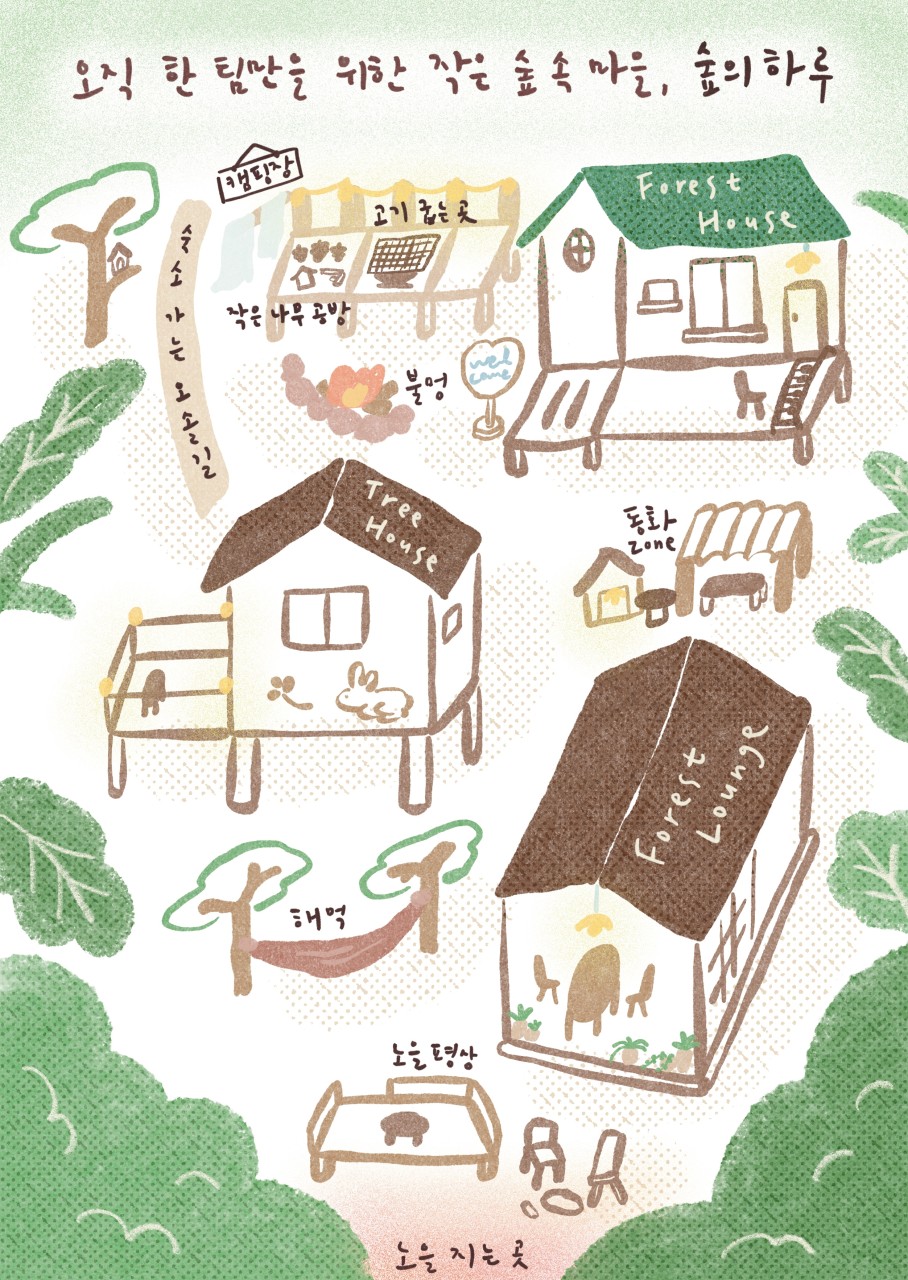 오직 한 팀만을 위한 작은 숲 속 마을, 숲의 하루
캠핑장
고기 굽는 곳
Forest
House
숙소 가는 오솔길
작은 나무 공방
불멍
wel
come
Tree
House
동화
zone
Forest
Lounge
해먹
노을 평상
노을 지는 곳